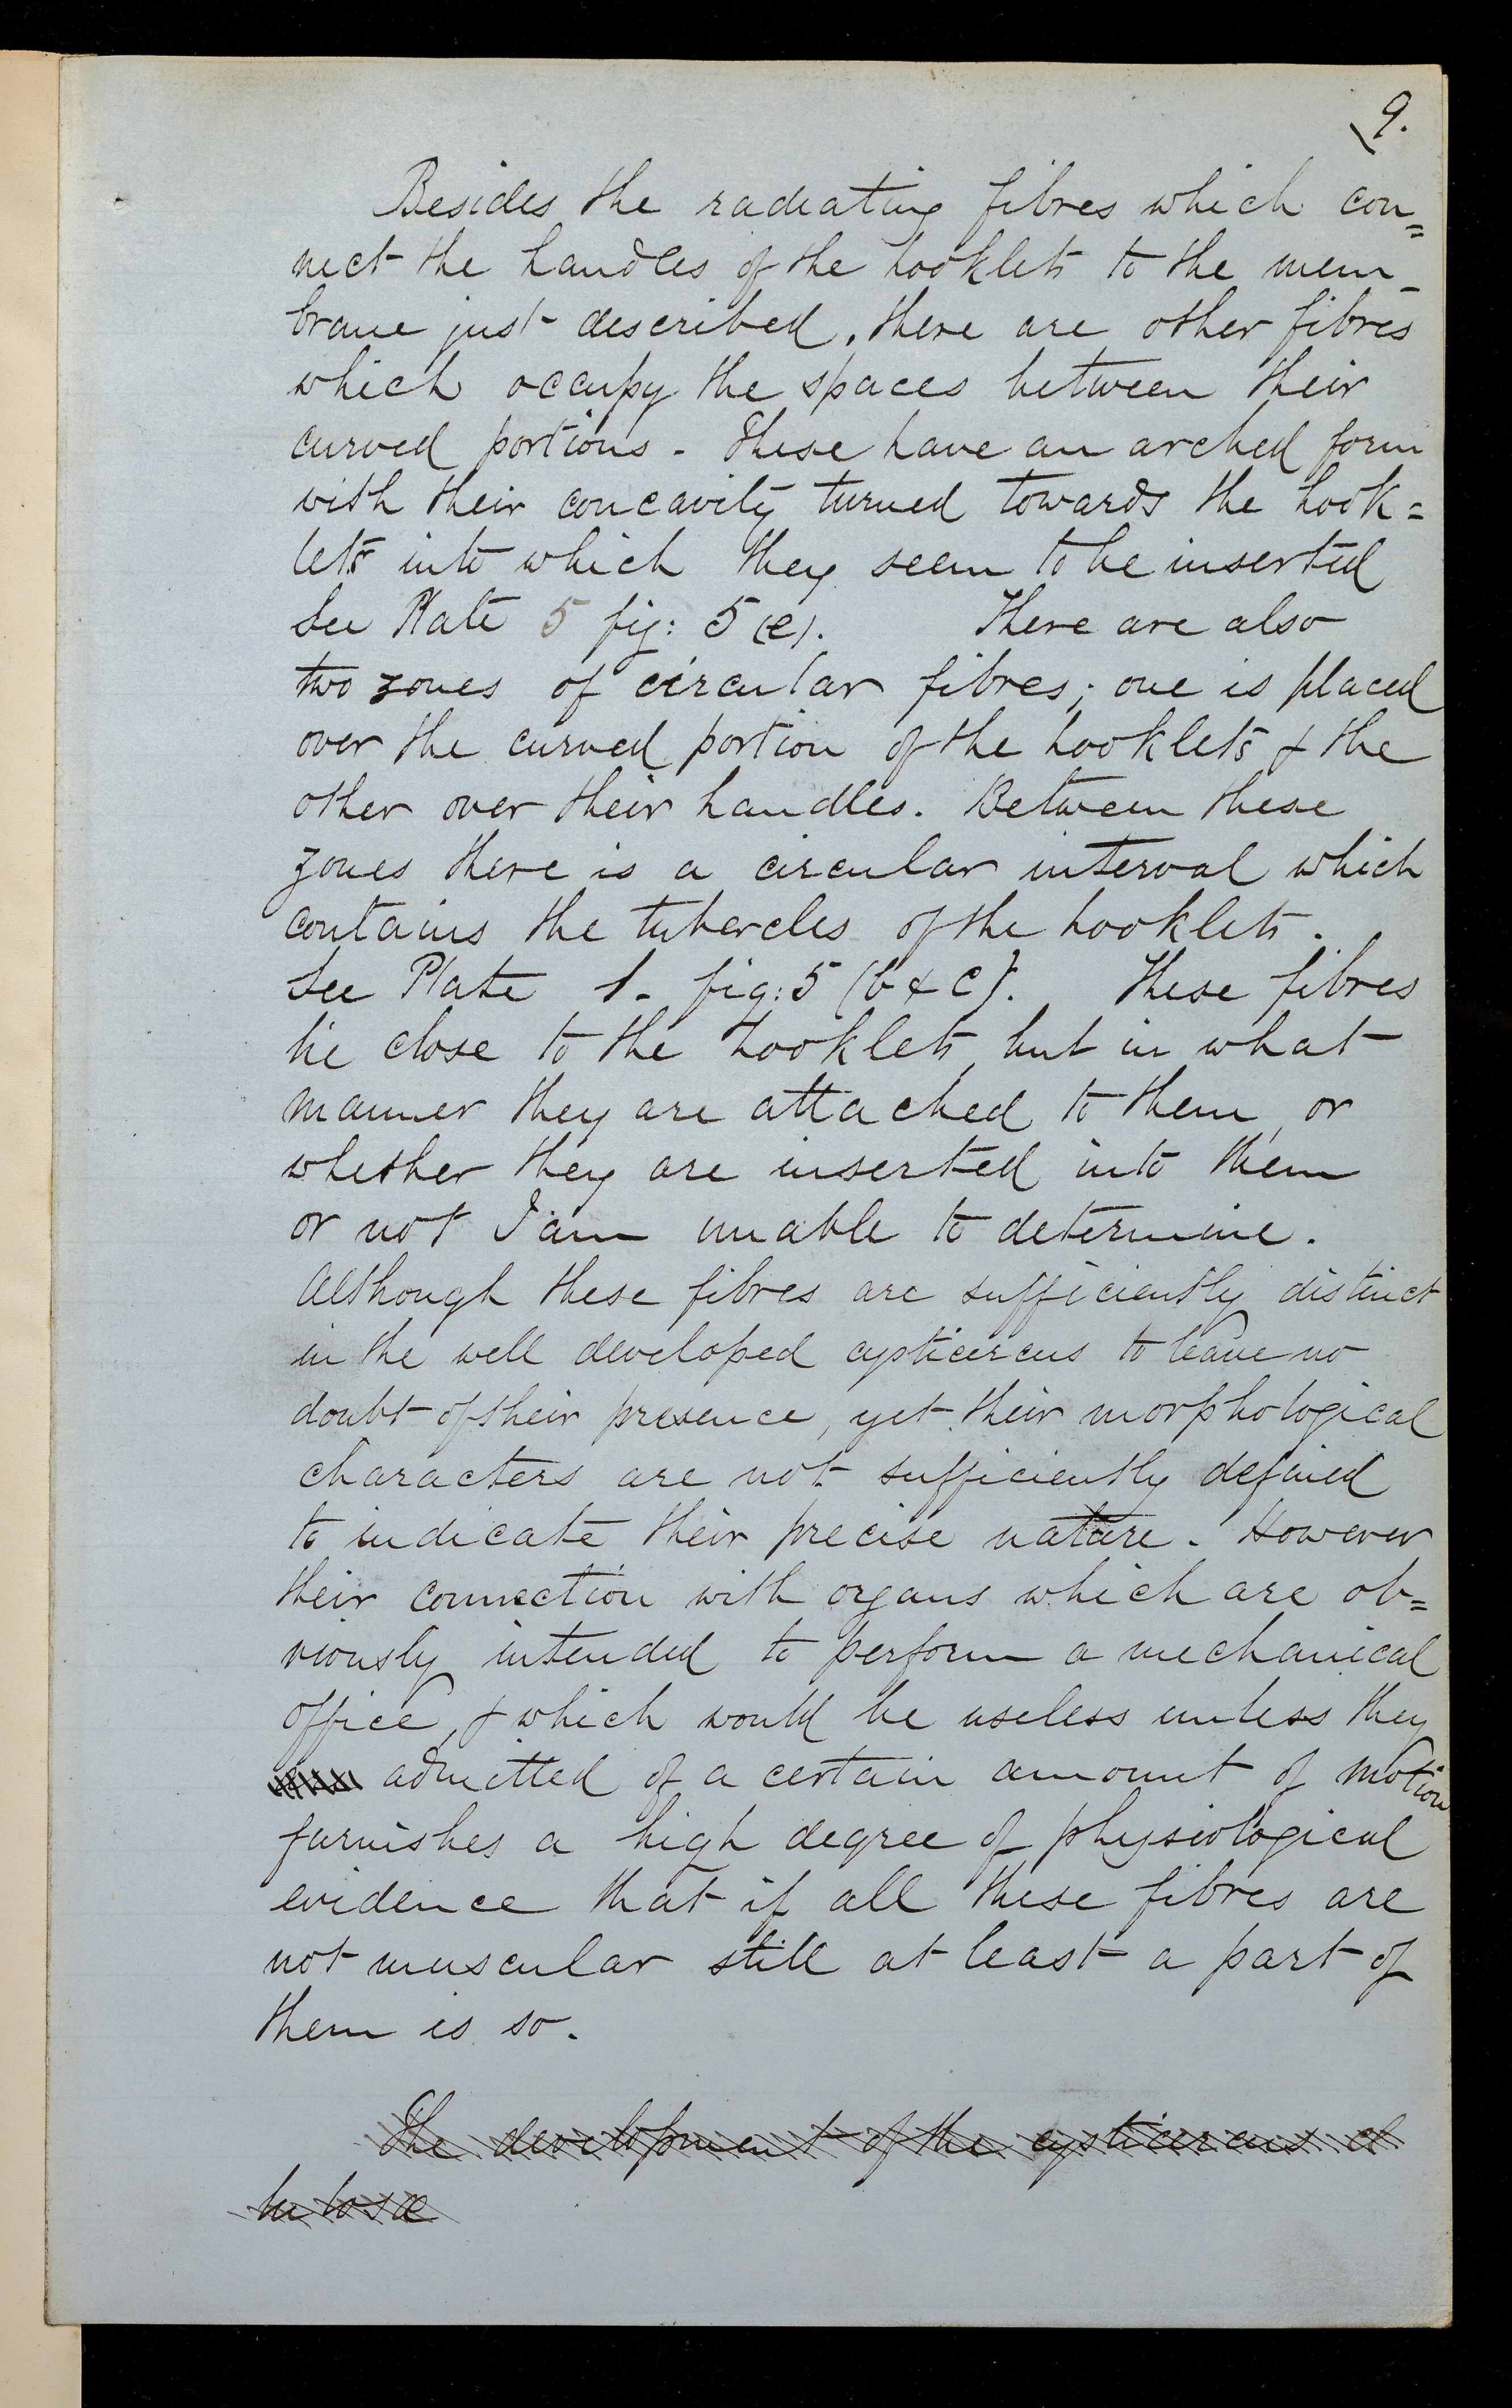 9.
Besides the radiating fibres which con=
nect the handles of the hooklets to the mem-
brane just described, there are other fibres
which occupy the spaces between their
curved portions. These have an arched form
with their concavity turned towards the hook=
lets into which they seem to be inserted
See Plate 5 fig: 5 (e). There are also
two zones of circular fibres; one is placed
over the curved portion of the hooklets & the
other over their handles. Between these
zones there is a circular interval which
contains the tubercles of the hooklets.
See Plate 1. fig: 5 (b & c). These fibres
lie close to the hooklets, but in what
manner they are attached to them, or
whether they are inserted into them
or not I am unable to determine.
Although these fibres are sufficiently distinct
in the well developed cysticercus to leave no
doubt of their presence, yet their morphological
characters are not sufficiently defined
to indicate their precise nature. However
their connection with organs which are ob=
viously intended to perform a mechanical
office, & which would be useless unless they
admitted of a certain amount of motion
furnishes a high degree of physiological
evidence that if all these fibres are
not muscular still at least a part of
them is so.
The development of the cysticercus